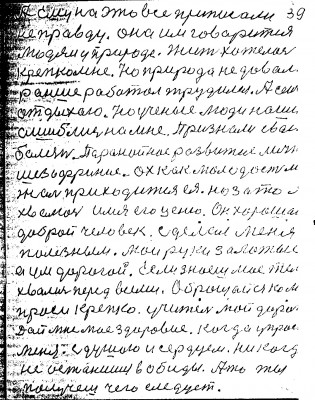 А сии на это все приписали 39
неправду. Она им говорится
людям у природе. Жит хотелая
крепко мне. Но природа не довал.
ранше работал трудилы. А сеи
отдыхаю. Но ученые люди наши
ошиблися на мне. Признали свае
болезн. Паранотное развитие личн
шезьофрение. Ох как молодост м
не приходится ея. но за то
хвалюя имя его ценю. Он хорошии
доброй человек. сделся меня
полезным. мои руки залотые
я им дорогой. Если знаеш мое тел
хвались перед всеми. Обращайся ком
проси крепко. учитель мой даро
вай мне мое здоровие. Когда упрос
меня: с душою и сердцем. никогд
не останиш в обиды. Ато ты
получеш чего следует.